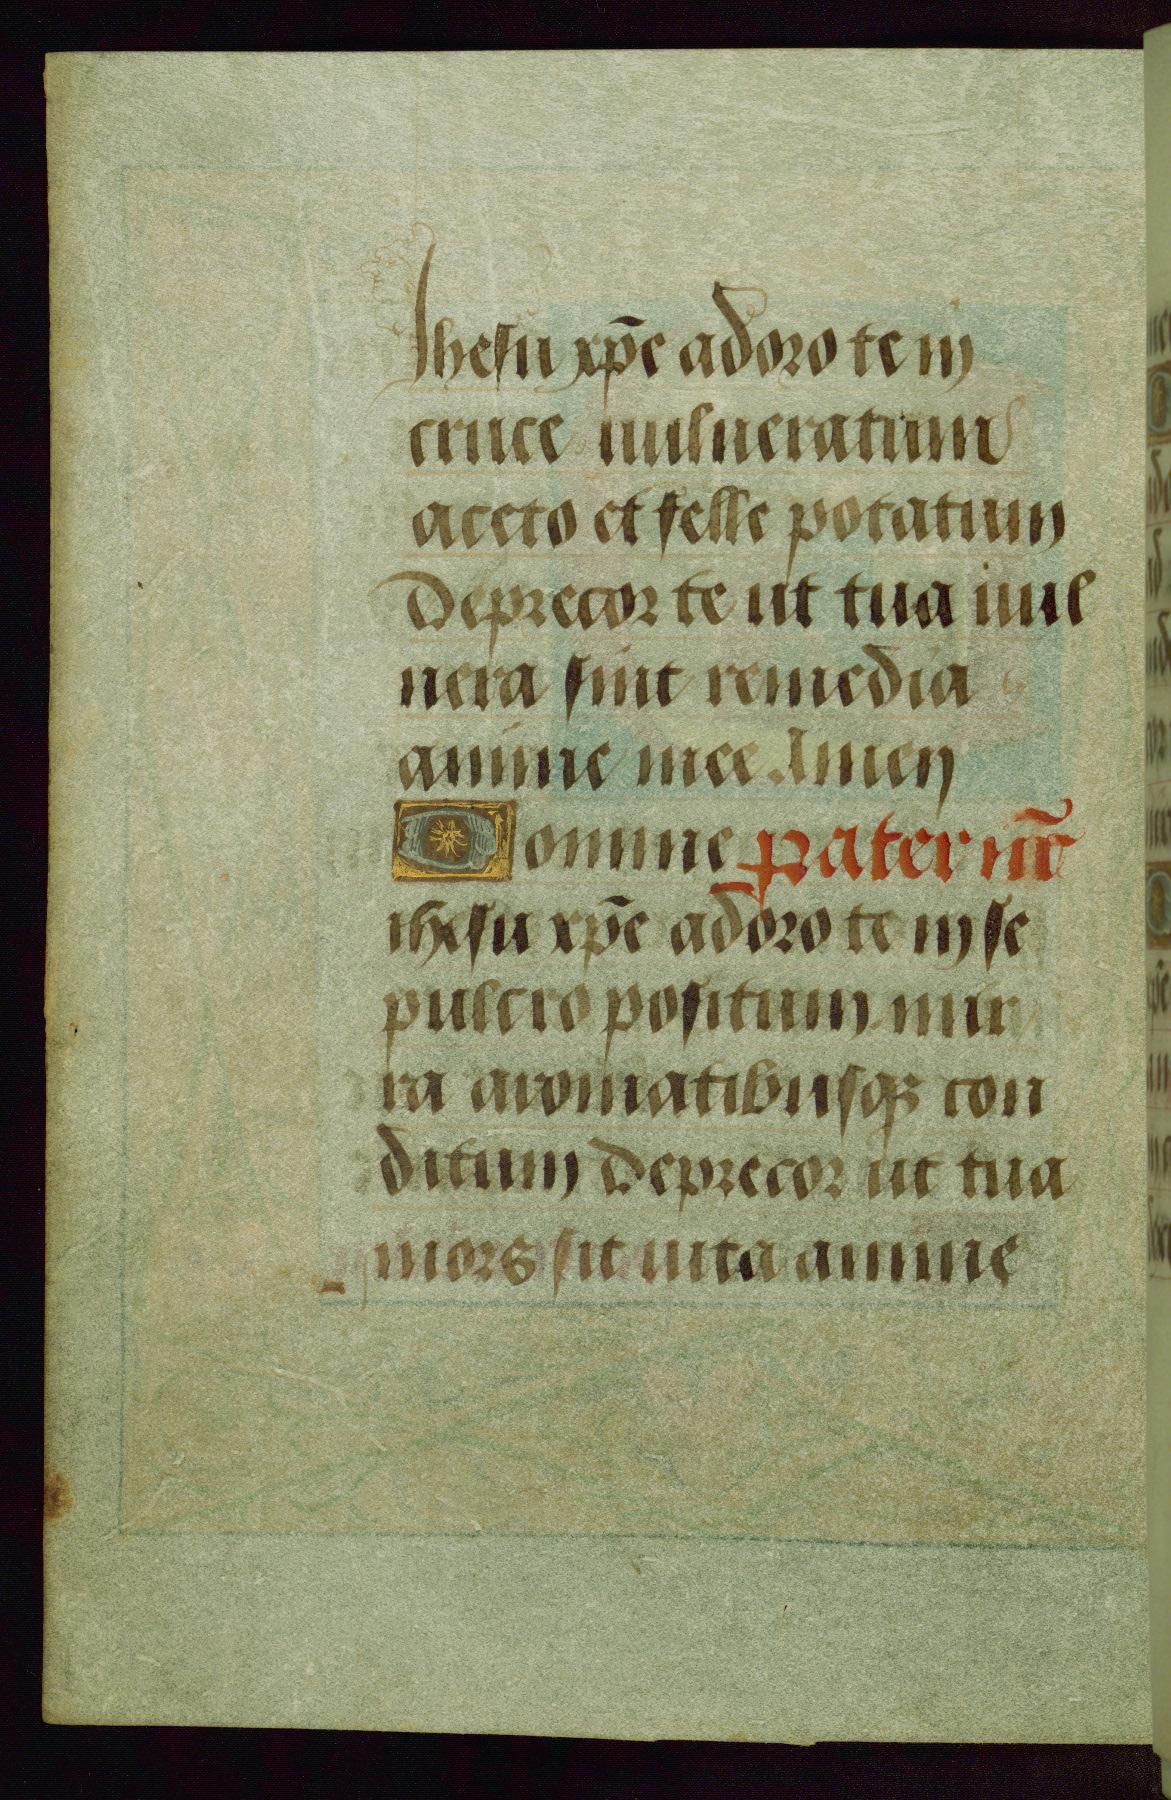 Ihesu xp̄e adoro te in
cruce uulneratum
aceto et felle potatum
Deprecor te ut tua uul
nera sint remedia
anime mee. Amen
Domine pater nr̄
ihesu xp̄e adoro te in se
pulcro positum mir
ra aromatibusqꝫ con
ditum Deprecor ut tua
mors sit uita anime